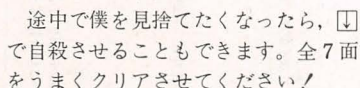 途中で僕を見捨てたくなったら，↓
で自殺させることもできます。全7面
をうまくクリアさせてください！